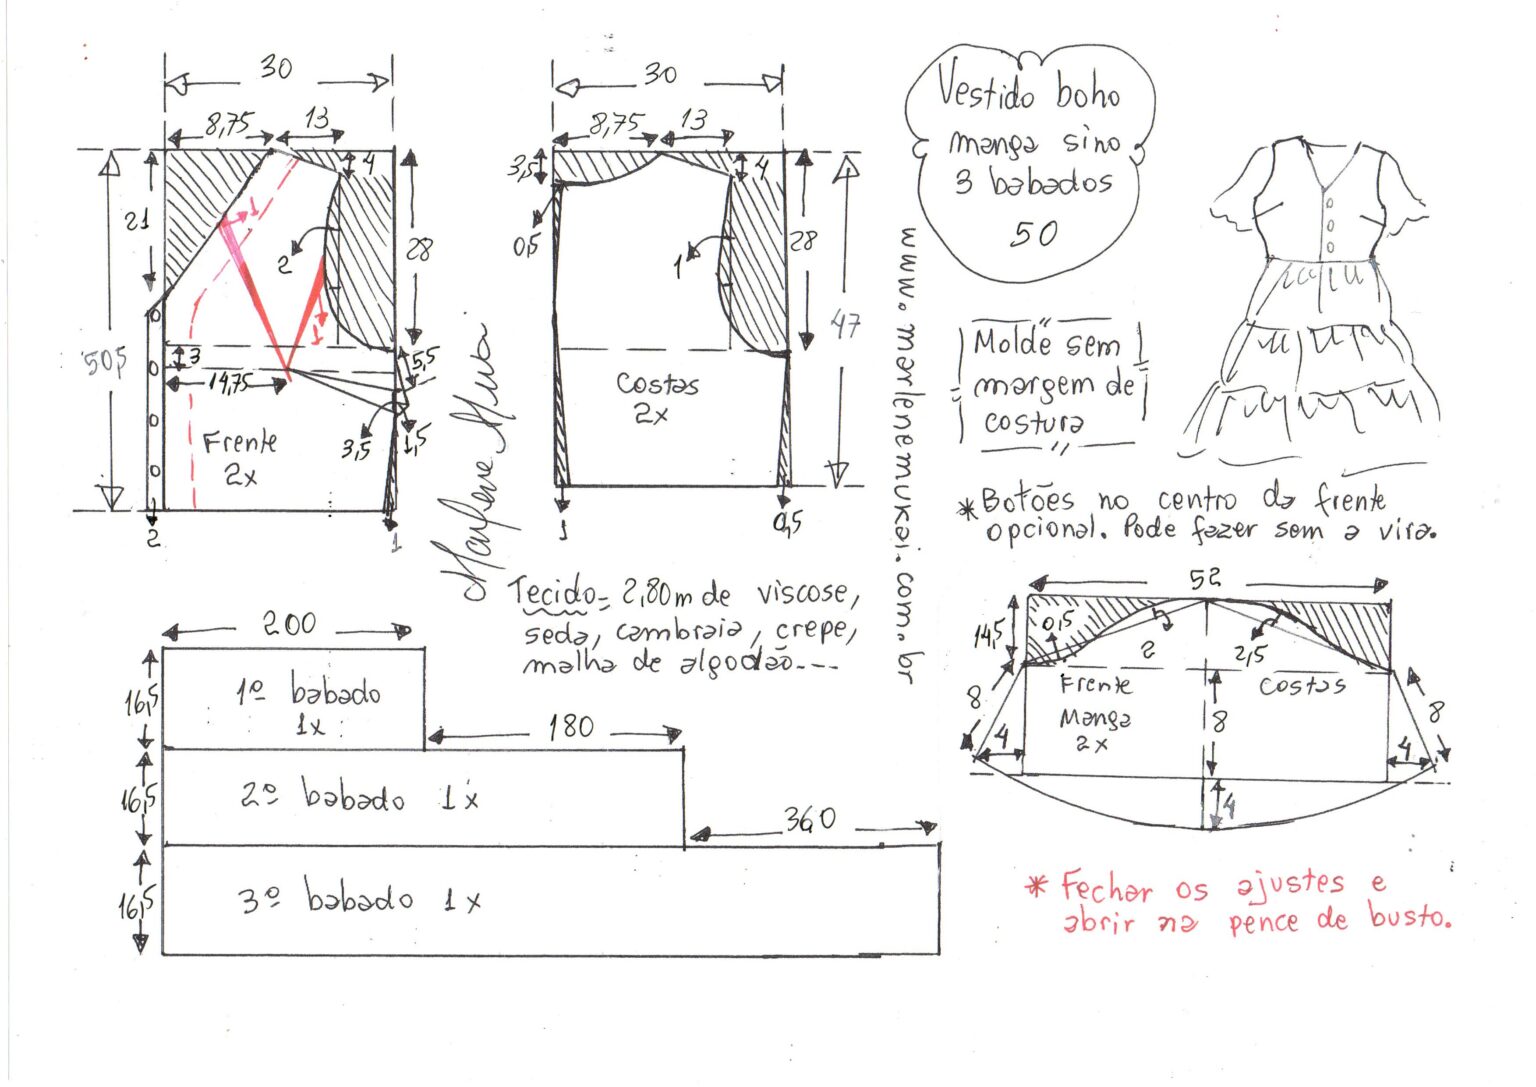 30
8,75
13
4
21
1
2
28
50,5
3
14,75
1
5,5
3,5
1,5
Frente
2x
2
1
30
8,75
13
3,5
4
0,5
1
28
47
Costas
2x
1
0,5
Vestido boho
manga sino
3 babados
50
www.marlenemukai.com.br
Molde sem
margem de
costura
* Botões no centro da frente
opcional. Pode fazer sem a vira.
Tecido= 2,80m de viscose,
seda, cambraia, crepe,
malha de algodão---
200
16,5
1º babado
1x
180
16,5
2º babado 1x
360
16,5
3º babado 1x
52
14,5
0,5
2
2,5
Frente
Costas
Manga
2x
8
8
8
4
4
4
* Fechar os ajustes e
abrir na pence de busto.